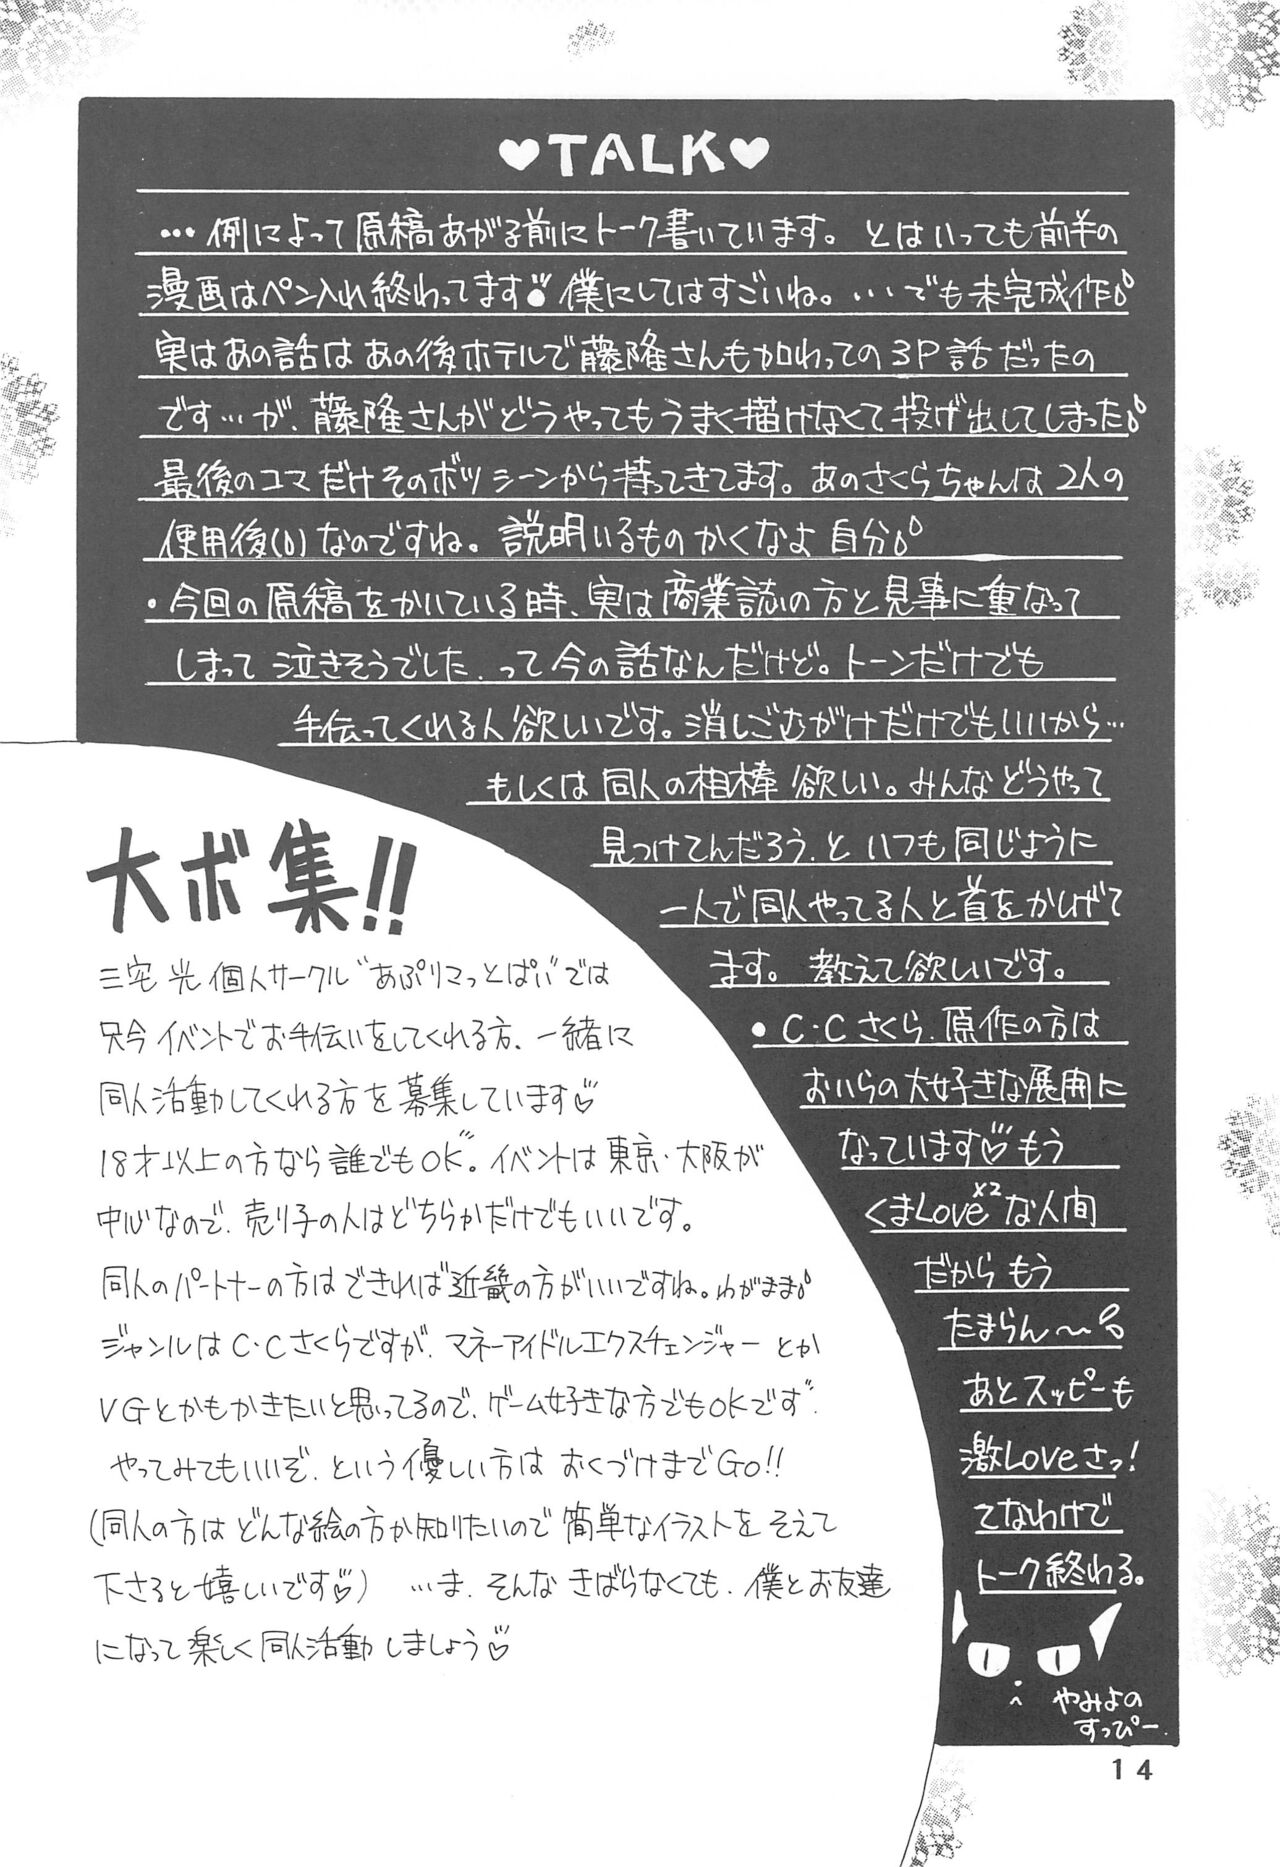 ♥TALK♥
…例によって原稿あがる前にトーク書いています。とはいっても前半の
漫画はペン入れ終わってます 僕にしてはすごいね。…でも未完成作
・今回の原稿をかいている時、実は商業誌の方と見事に重なって
しまって泣きそうでした、って今の話なんだけど。トーンだけでも
手伝ってくれる人欲しいです。消しごむがけだけでもいいから…
もしくは同人の相棒欲しい。みんなどうやって
見つけてんだろう、といつも同じように
一人で同人やってる人と首をかしげて
ます。教えて欲しいです。
・C・Cさくら、原作の方は
おいらの大好きな展開に
なっています♡もう
くまLove×2な人間
だからもう
たまらん〜
あとスッピーも
激Loveさっ!
てなわけで
トーク終わる。
やみよの
すっぴー.
大ボ集!!
三宅光個人サークル"あぷりまっとぱい"では
只今イベントでお手伝いをしてくれる方、一緒に
同人活動してくれる方を募集しています♡
18才以上の方なら誰でもOK。イベントは東京・大阪が
中心なので、売り子の人はどちらかだけでもいいです。
同人のパートナーの方はできれば近畿の方がいいですね。わがまま
ジャンルはC・Cさくらですが、マネーアイドルエクスチェンジャーとか
VGとかもかきたいと思ってるので、ゲーム好きな方でもOKです
やってみてもいいぞ、という優しい方はおくづけまでGo!!
(同人の方はどんな絵の方か知りたいので簡単なイラストをそえて
下さると嬉しいです♡) …ま、そんなきばらなくても、僕とお友達
になって楽しく同人活動しましょう♡
14